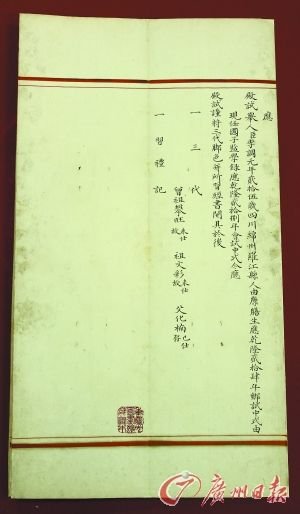 應
殿試舉人臣李調元年貳拾伍歲四川綿州羅江縣人由廩膳生應乾隆貳拾肆年鄉試中式由
現任國子監學錄應乾隆貳拾捌年會試中式今應
殿試謹將三代脚色并所習經書開具於後
一 三 代
曾祖攀旺 未仕 故 祖文彩 未仕 故 父化楠 已仕 存
一 習 禮 記
廣州日報